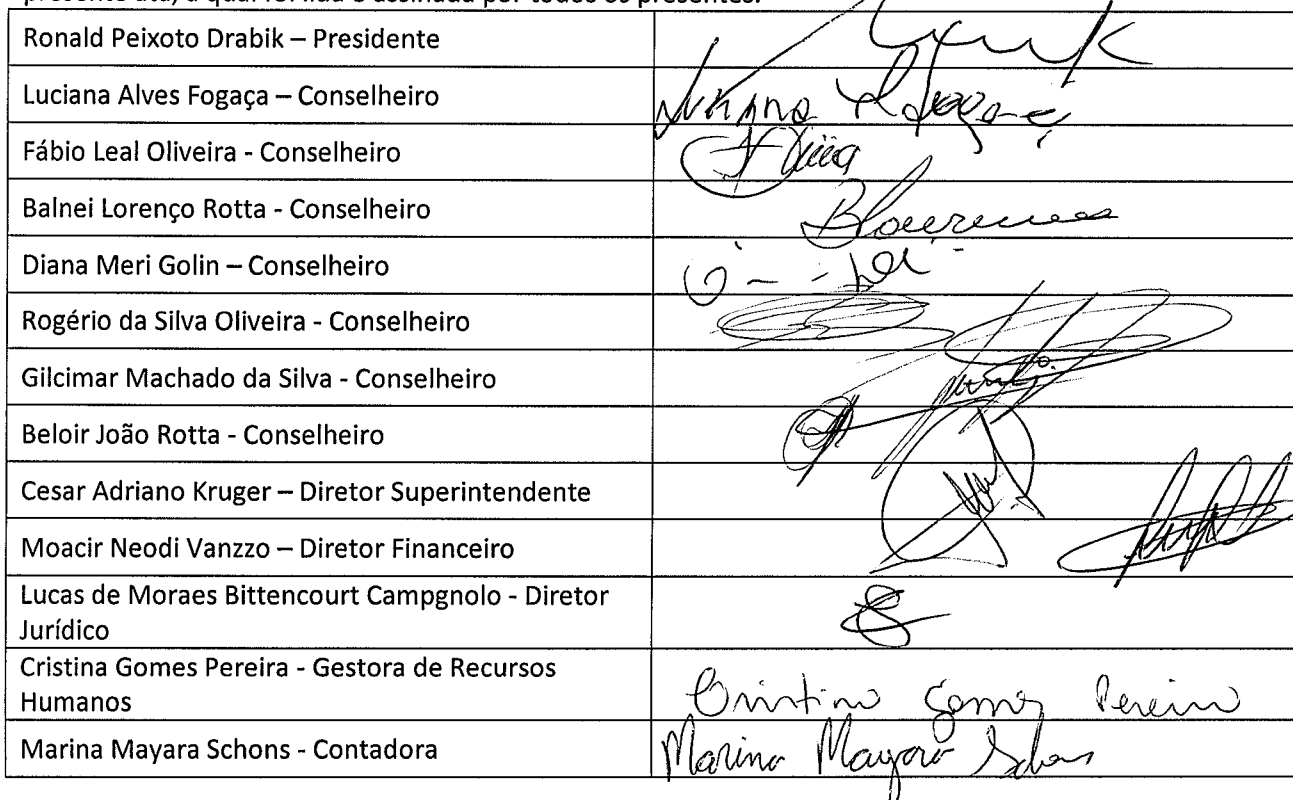 presente ata, a qual foi lida e assinada por todos os presentes.
Ronald Peixoto Drabik – Presidente
Luciana Alves Fogaça – Conselheiro
Luciana Fogaça
Fábio Leal Oliveira - Conselheiro
Balnei Lorenço Rotta - Conselheiro
Diana Meri Golin – Conselheiro
Rogério da Silva Oliveira - Conselheiro
Gilcimar Machado da Silva - Conselheiro
Beloir João Rotta - Conselheiro
Cesar Adriano Kruger – Diretor Superintendente
Moacir Neodi Vanzzo – Diretor Financeiro
Lucas de Moraes Bittencourt Campgnolo - Diretor
Jurídico
Cristina Gomes Pereira - Gestora de Recursos
Humanos
Cristina Gomes Pereira
Marina Mayara Schons - Contadora
Marina Mayara Schons